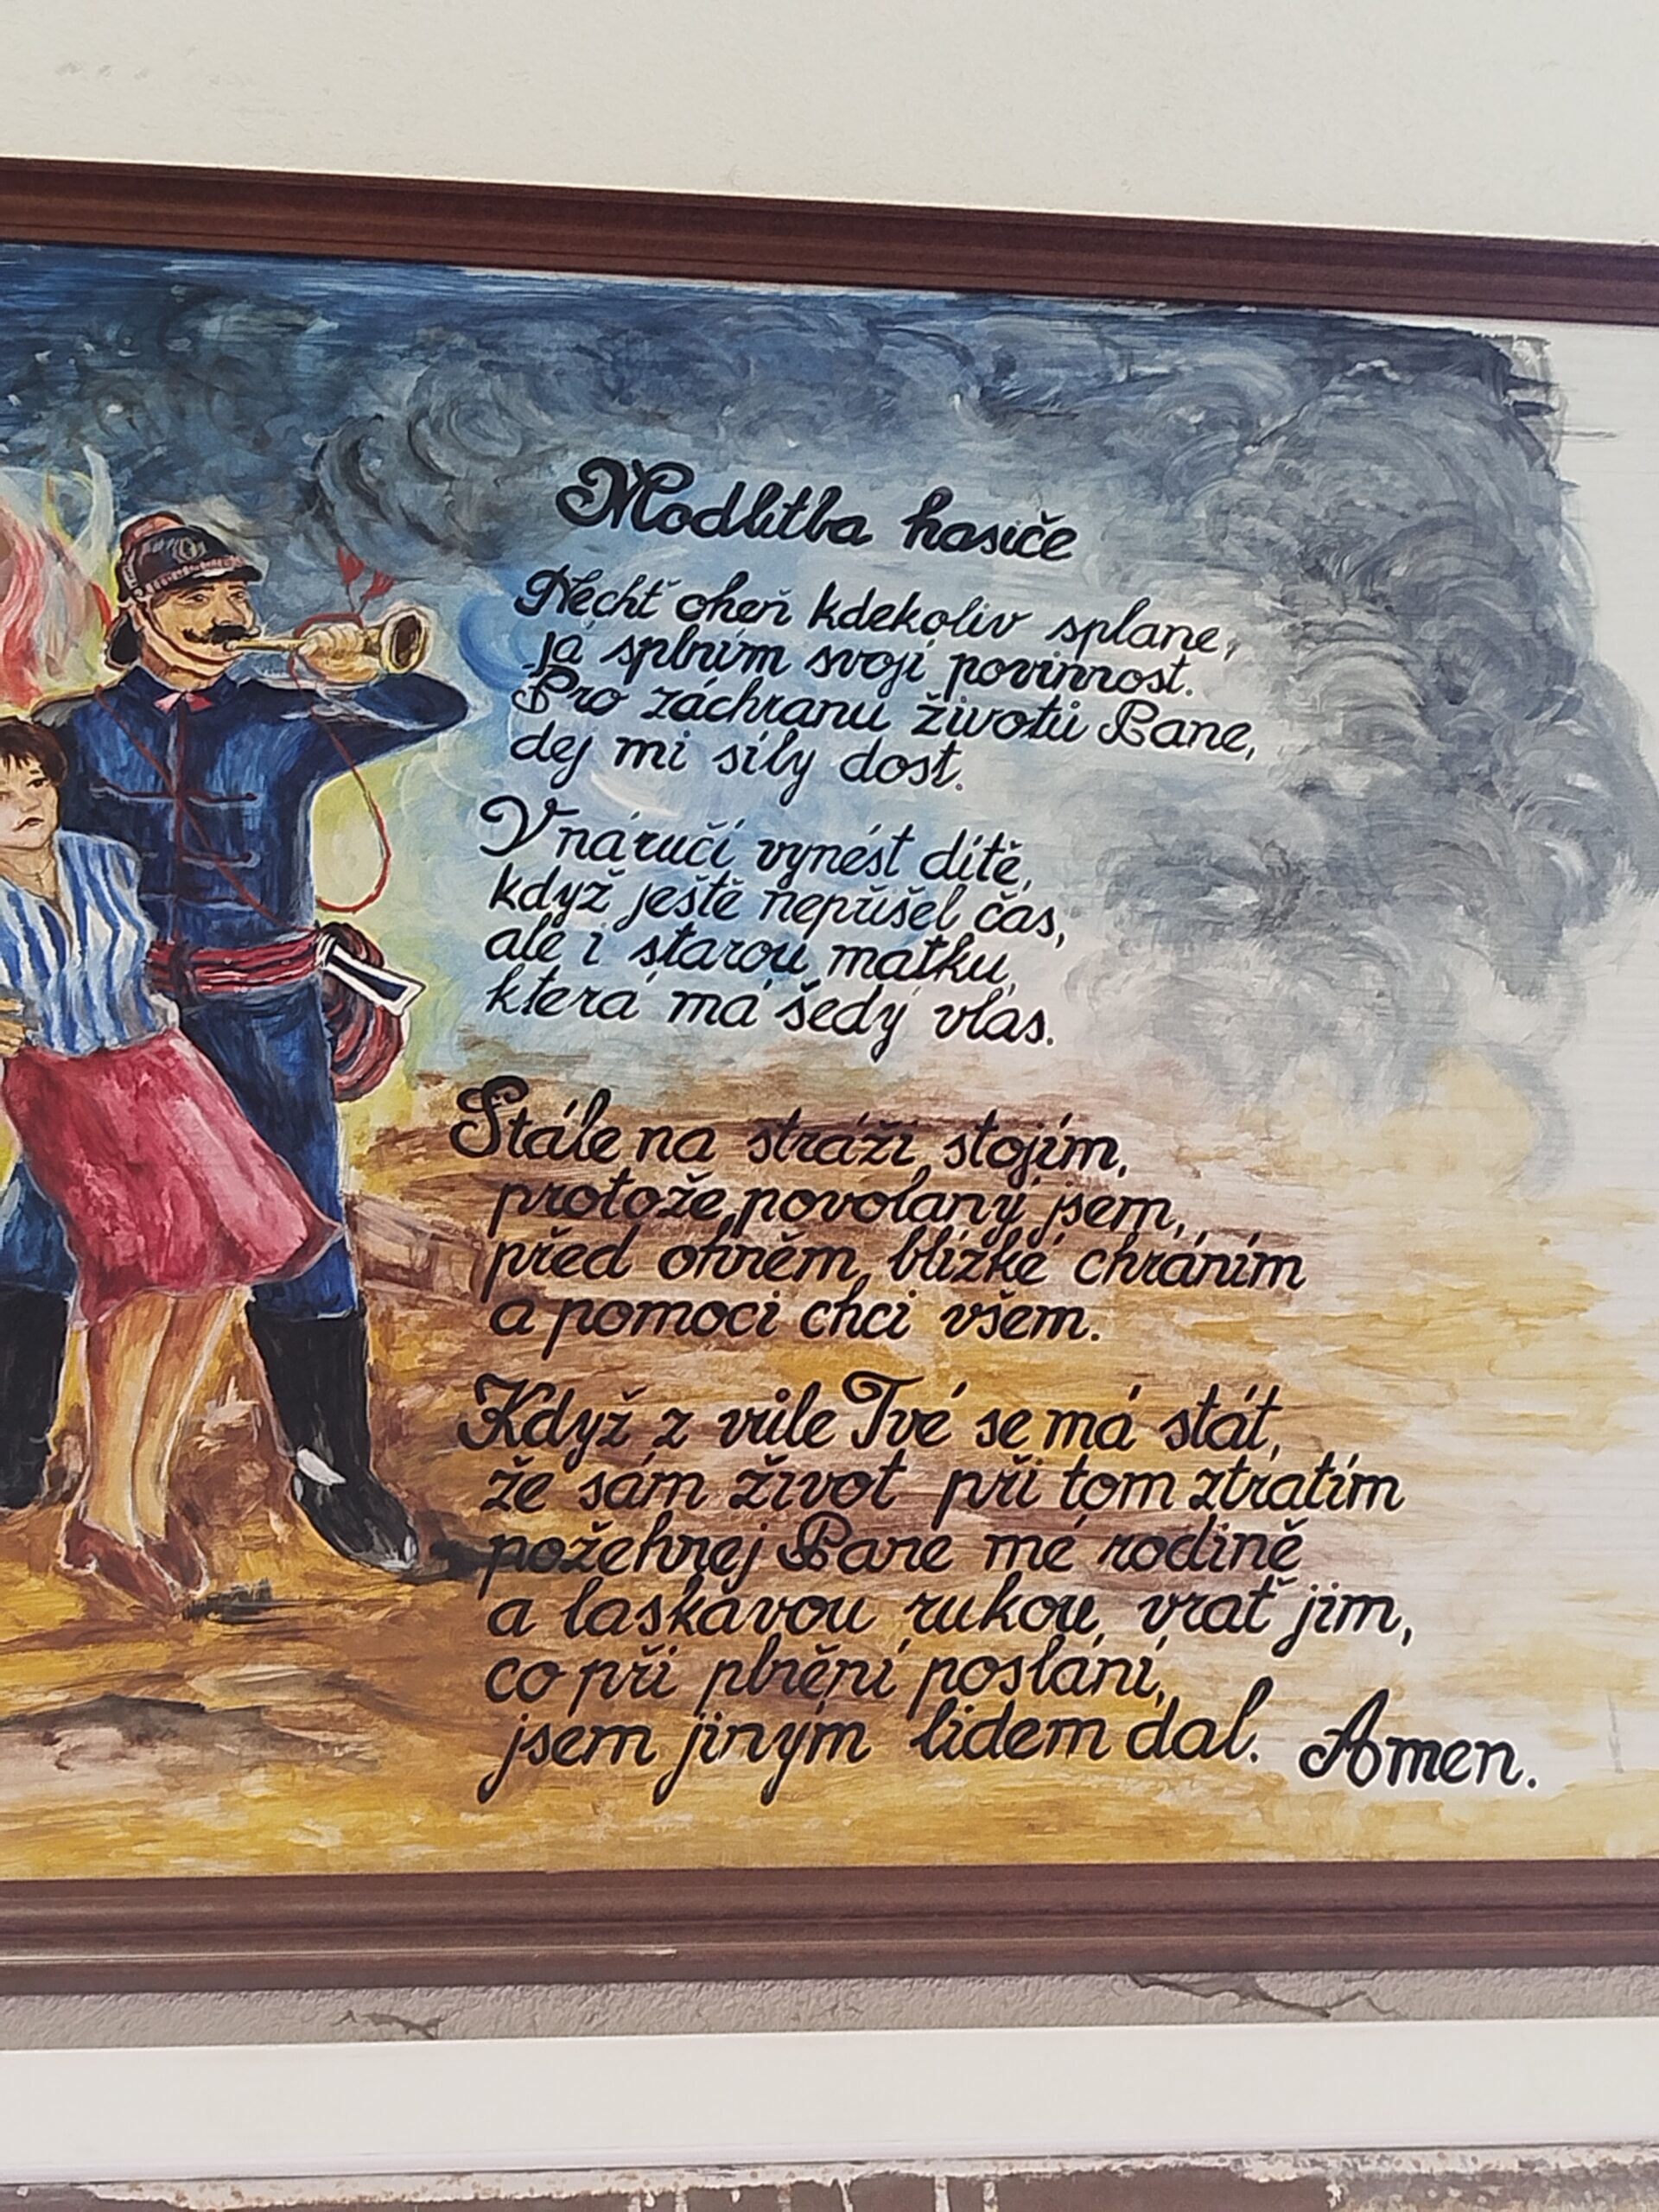 Modlitba hasiče
Nechť oheň kdekoliv splane,
já splním svoji povinnost.
Pro záchranu životů Pane,
dej mi síly dost.
V náručí vynést dítě,
když ještě nepřišel čas,
ale i starou matku,
která má šedý vlas.
Stále na stráži stojím,
protože povolaný jsem,
před ohněm blízké chráním
a pomoci chci všem.
Když z vůle Tvé se má stát,
že sám život při tom ztratím
požehnej Pane mé rodině
a laskavou rukou vrať jim,
co při plnění poslání,
jsem jiným lidem dal. Amen.